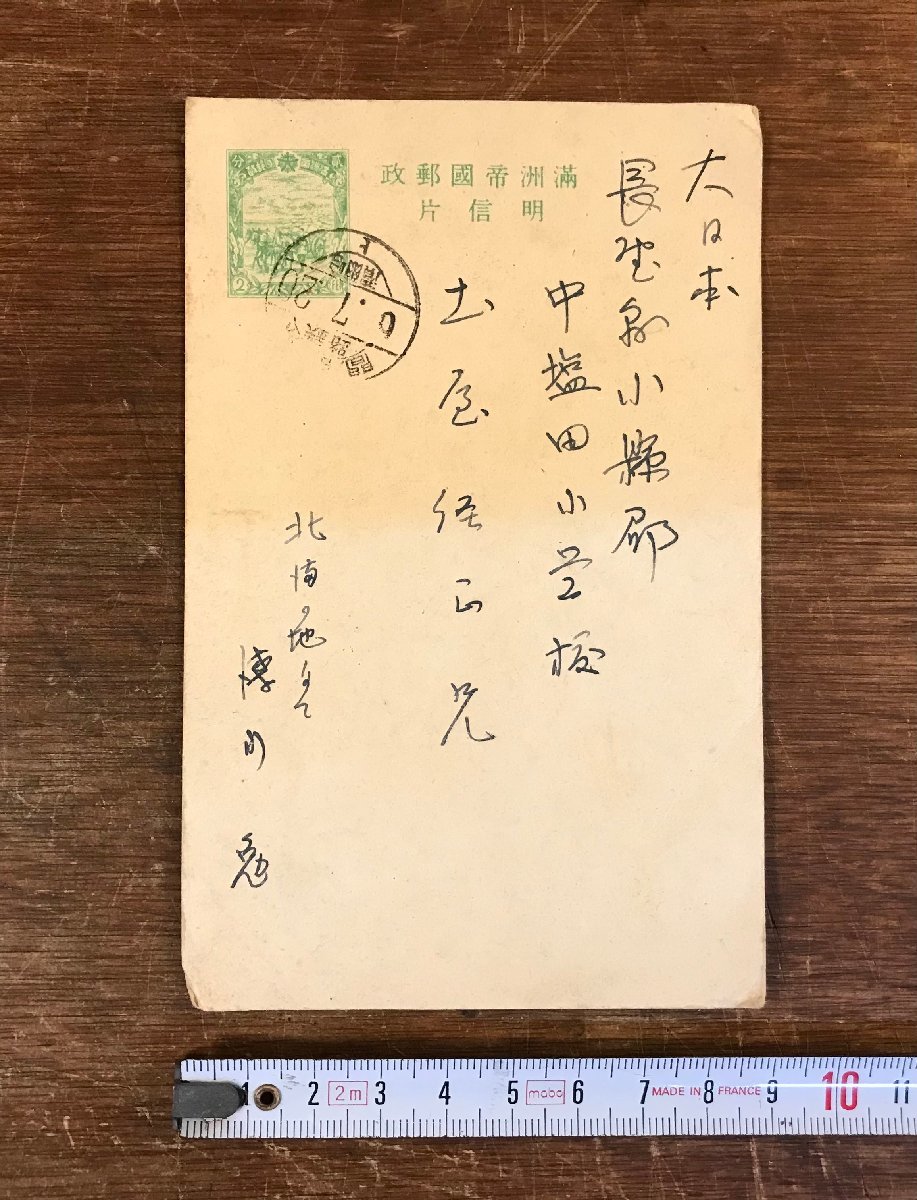 滿洲帝國郵政
明信片
大日本
長野縣小縣郡
中塩田小学校
土屋 正兄
北満の地にて
勉
2
7
20
1 2 2m 3 4 5 mabo 6 7 MADE IN 8 FRANCE 9 10 11